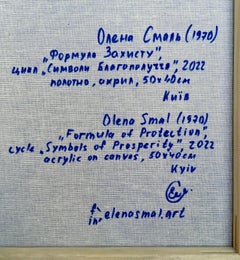 Олена Смаль (1970)
„Формула Захисту",
цикл „Символи Благополуччя", 2022
полотно, акрил, 50х40см
Київ
Olena Smal (1970)
„Formula of Protection",
cycle „Symbols of Prosperity", 2022
acrylic on canvas, 50x40cm
Kyiv
f:
in: elenasmal.art